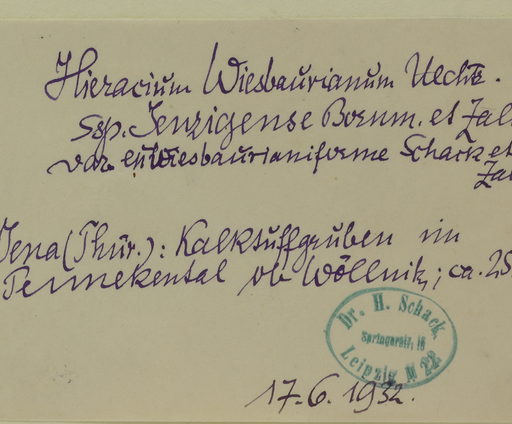 Hieracium Wiesbaurianum Uechtr.
ssp. Jenzigense Bornm. et Zah
var. euwiesbaurianiforme Schack et
Zah
Jena (Thür.): Kalktuffgruben im
Pennickental ob Wöllnitz; ca. 25
Dr. H. Schack,
Springerstr. 16
Leipzig N 22
17.6.1932.